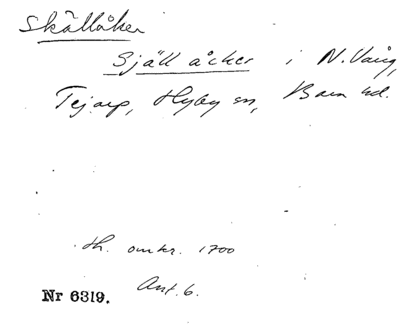 Skällåker
Själl åcker i N. Vång,
Tejarp, Hyby sn, Bara hd.
th. omkr. 1700
Ant. 6.
Nr 6319.